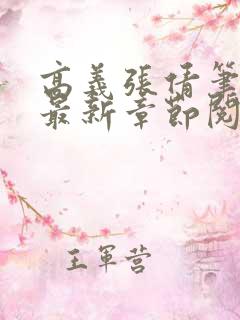 高義張倩筆
最新章節閱
王軍营